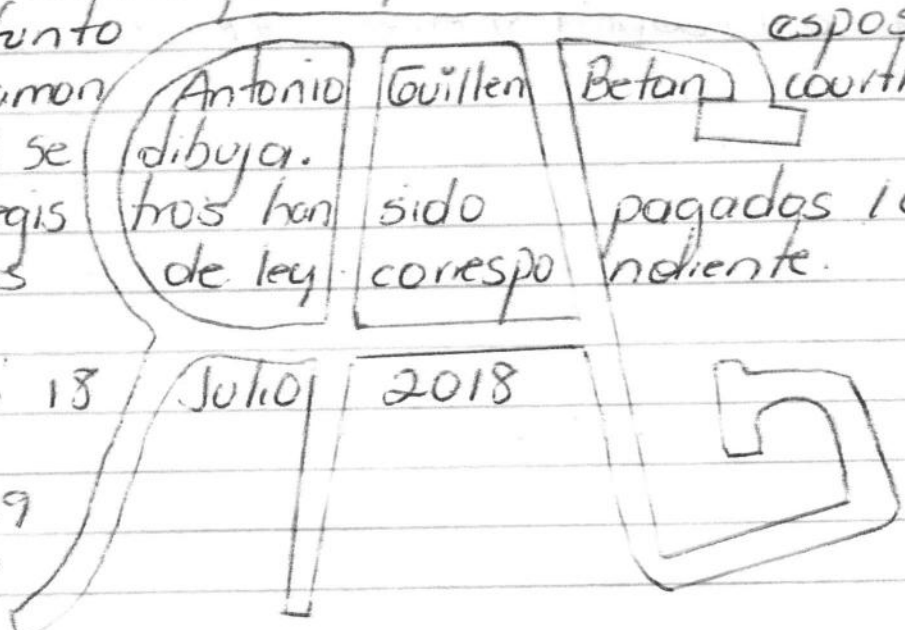 funto espos
amon Antonio Guillen Betan court
se dibuja.
egis tros han sido pagados
s de ley correspo ndiente.
18 Julio 2018
9